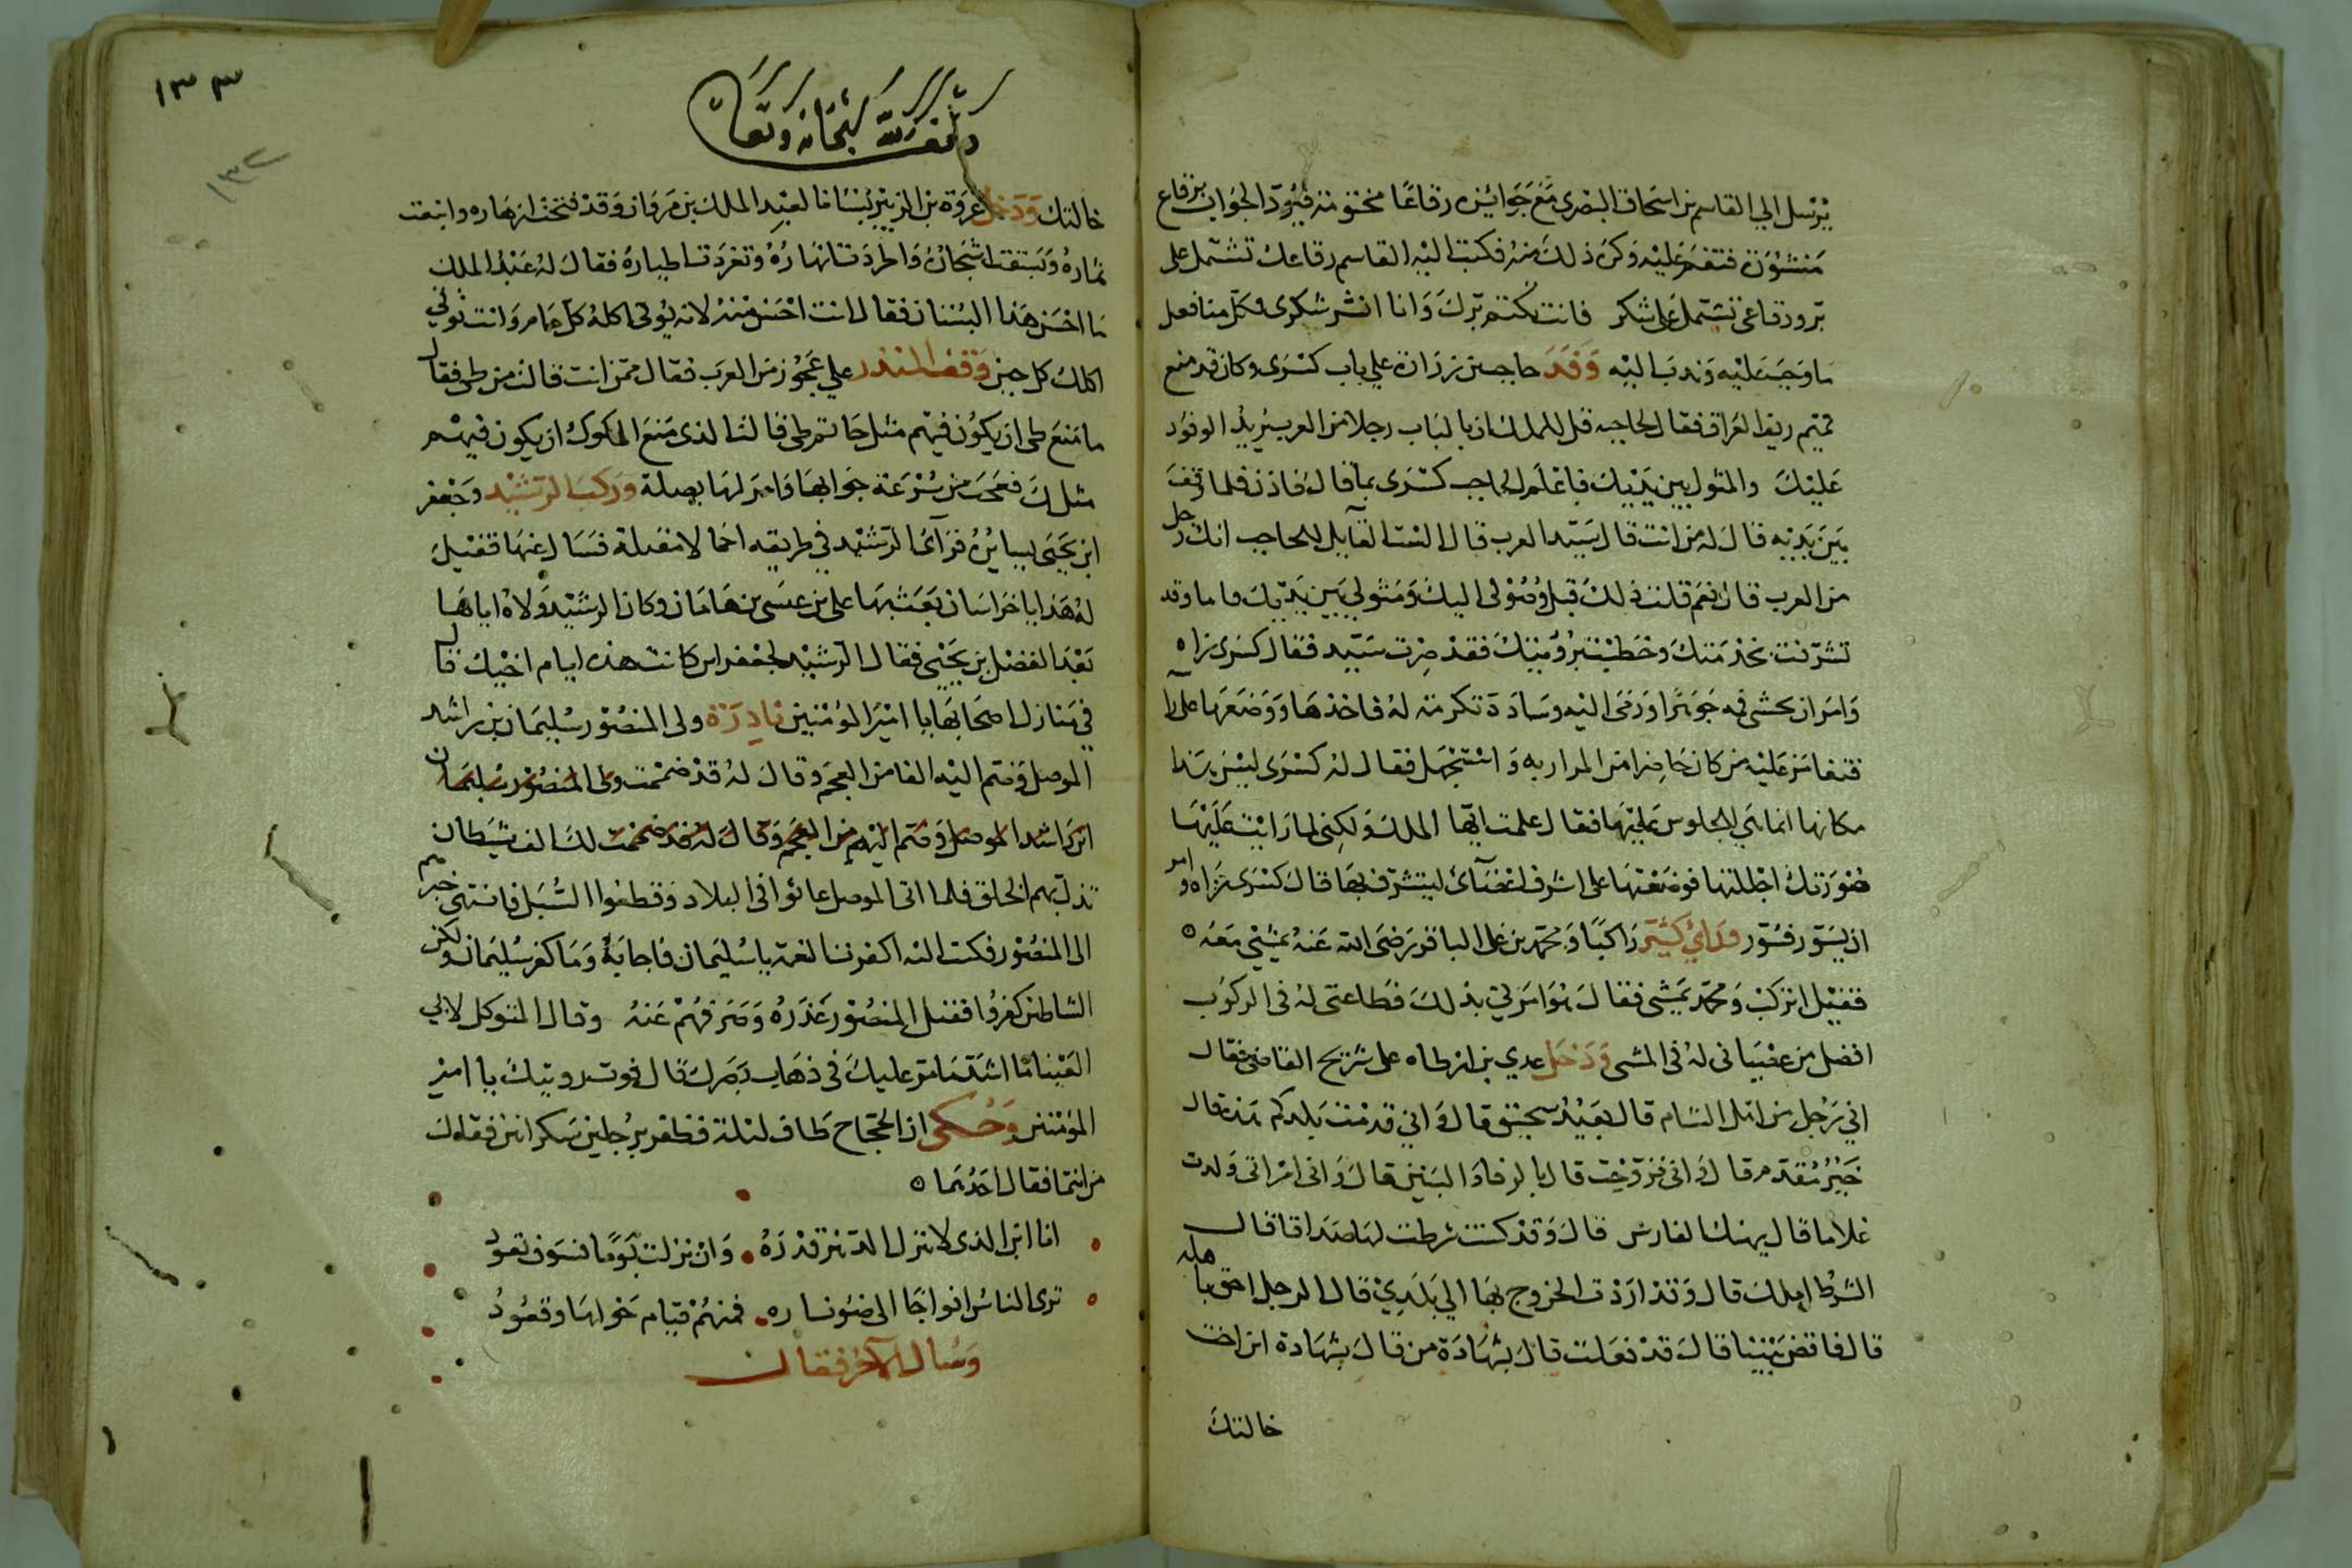 يرسل الي القاسم بن اسحاق البصرى مع جوائزه رقاعًا مختومة فيرد الجواب برقاع
منشورة فتغم عليه وكره ذلك منه فكتب اليه القاسم رقاعك تشتمل على
بر ورقاعى تشتمل على شكر فانت تكتم برك وانا انشر شكرى وكل منا فعل
ما وجب عليه وندب اليه وفد حاجب بن زرارة علي باب كسرى وكان قد منع
تميم ريف العراق فقال لحاجبه قل للملك ان بالباب رجلا من العرب يريد الوفود
عليك والمثول بين يديك فاعلم الحاجب كسرى بما قال فاذن فلما وقف
بين يديه قال له من انت قال سيد العرب قال الست القايل للحاجب انك رجل
من العرب قال نعم قلت ذلك قبل وصولى اليك ومثولي بين يديك فاما وقد
تشرفت بخدمتك وخطيت برؤيتك فقد صرت سيد فقال كسرى زاه
وامر ان يحشى فمه جوهرا ورمى اليه وسادة تكرمة له فاخذها ووضعها على رآ
فتغامز عليه من كان حاضرا من المرازبه واستجهل فقال له كسرى ليس هذا
مكانها انما هي للجلوس عليها فقال علمت ايها الملك ولكني لما رايت عليها
صورتك اجللتها فوضعتها على اشرف اعضآئ ليتشرف بها قال كسرى زاه وامر
ان يسور فسور ورائ كثير راكبًا ومحمد بن على الباقر رضى الله عنه يمشي معه
فقيل اتركب ومحمد يمشى فقال هو امرني بذلك فطاعتى له فى الركوب
افضل من عصيانى له فى المشى ودخل عدي بن ارطاه على شريح القاضى فقال
اني رجل من اهل الشام قال بعيد سحيق قال واني قدمت بلدكم هذا قال
خير مقدم قال وانى تزوجت قال بالرفاو البنين قال وانى امراتى ولدت
غلاما قال يهنك الفارس قال وقد كنت شرطت لها صداقا قال
الشرط املك قال وقد اردت الخروج بها الي بلدي قال الرجل احق باهله
قال فاقض بيننا قال قد فعلت قال بشهادة من قال بشهادة ابن اخت
خالتك
١٣٣
١٣٢
وقف لله سبحانه وتعالى
خالتك ودخل عروة بن الزبير بستانا لعبد الملك بن مروان وقد فتحت ازهاره واينعت
ثماره وبسقت اشجاره واطردت انهاره وتغردت اطياره فقال له عبد الملك
ما احسن هذا البستان فقال انت احسن منه لانه يوتى اكله كل عام وانت توتي
اكلك كل حين وقف المنذر علي عجوز من العرب فقال ممن انت قالت من طى فقال
ما منع طى ان يكون فيهم مثل حاتم طى قالت الذى منع الملوك ان يكون فيهم
مثلك فعجب من سرعة جوابها وامر لها بصلة وركب الرشيد وجعفر
ابن يحيى يسايره فرآى الرشيد في طريقه احمالا مقبلة فسال عنها فقيل
له هدايا خراسان بعث بها على بن عيسى بن هامان وكان الرشيد ولاه اياها
بعد الفضل بن يحيى فقال الرشيد لجعفر اين كانت هذه ايام اخيك قال
في منازل اصحابها يا امير المؤمنين نادرة ولى المنصور سليمان بن راشد
الموصل وضم اليه الفا من العجم وقال له قد ضممت ولى المنصور سليمان
ابن راشد الموصل وضم اليهم من العجم وقال له قد ضممت لك الف شيطان
تذل بهم الخلق فلما اتى الموصل عاثوا فى البلاد وقطعوا السبل فانتهى خبرهم
الى المنصور فكتب اليه اكفرت النعمة يا سليمان فاجابه وما كفر سليمان ولكن
الشاطين كفروا فقبل المنصور عذره وصرفهم عنه وقال المتوكل لابي
العينا ما اشد ما مر عليك فى ذهاب بصرك قال فوت رويتك يا امير
المؤمنين وحكى ان الحجاج طاف ليلة فظفر برجلين سكرانين فقال
من انتما فقال احدهما
انا ابن الذى لا تنزل الدهر قدره وان نزلت يوما فسوف تعود
ترى الناس افواجا الى ضو ناره فمنهم قيام حولها وقعود
وسال الآخر فقال